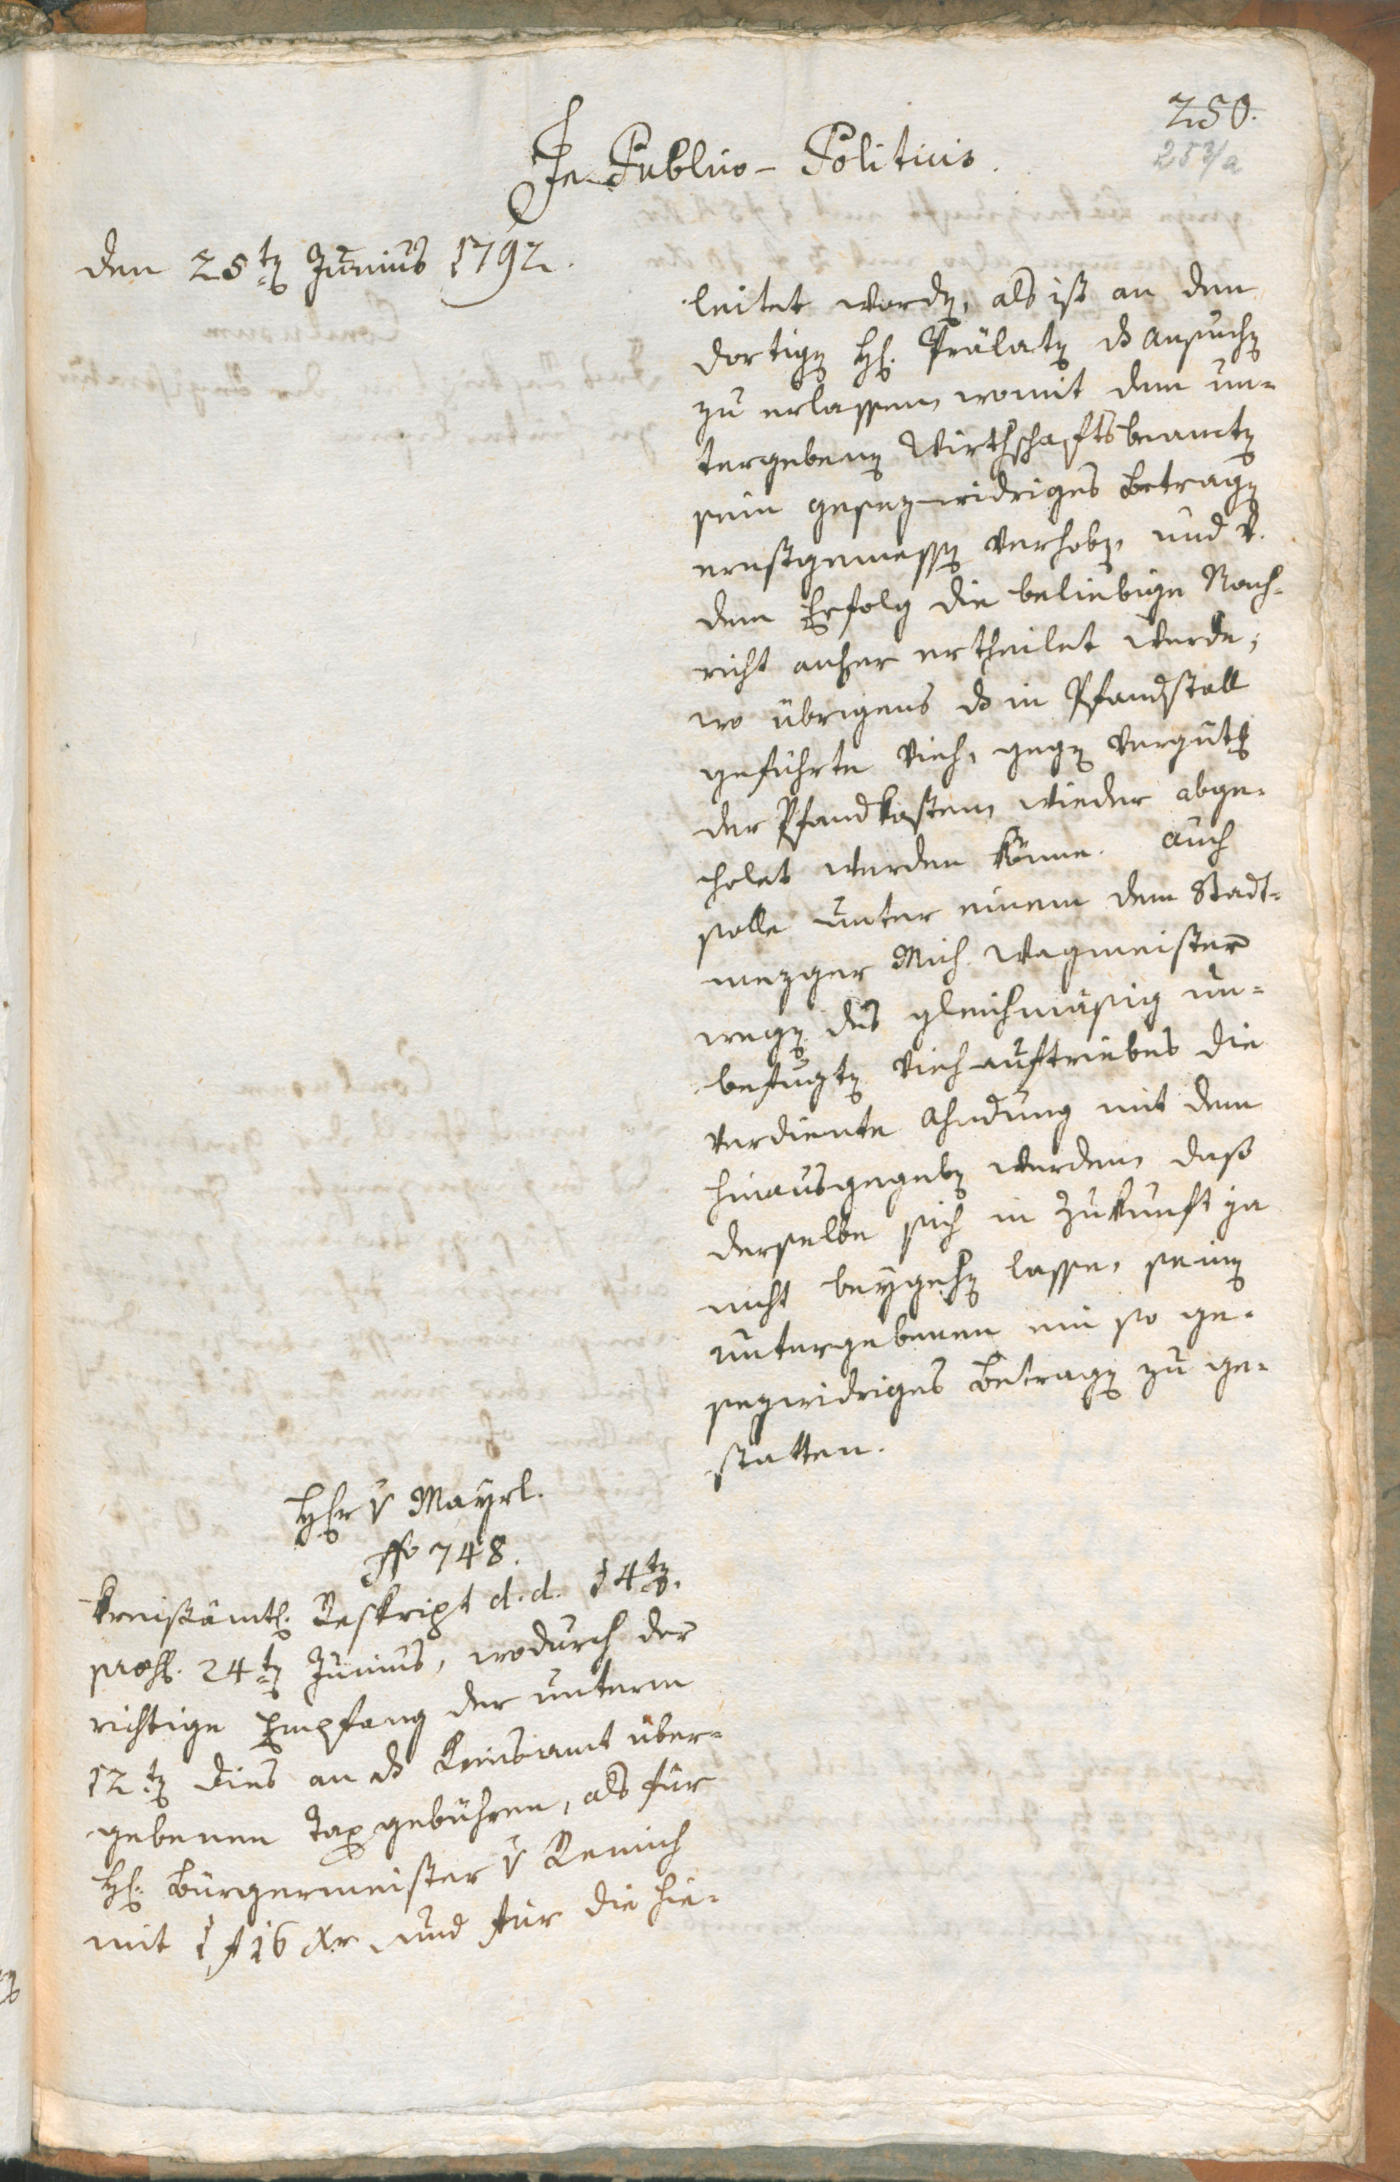 250.
253/a
In Publico-Politicis.
den 25t Junius 1792.
leitet word, als ist an den
dortig H. Prälat ds Ansuch
zu erlassen, womit dem un-
tergeben Wirthschaftsbeamt
sein gesez-widriges Betrag
ernstgemess verhob, und v.
dem Erfolg die beliebige Nach-
richt anher ertheilet werde,
wo übrigens ds in Pfandstall
geführte Vieh, geg Vergüt
der Pfandkosten, wieder abge-
holet werden könne. Auch
solle unter einem dem Stadt-
mezger Mich. Wagmeister
weg des gleichmäsig un-
befugt Vieh-auftriebes die
verdiente Ahndung mit dem
hinausgegeb werden, dass
derselbe sich in Zukunft ja
nicht beygeh lasse, sein
untergebenen ein so ge-
sezwidriges Betrag zu ge-
statten.
Hr v Mayrl.
No 748.
Kreisämtl. Reskript d. d. 14t.
præs. 24t Junius, wodurch der
richtige Empfang der unterm
12t dies an ds Kreisamt über-
gebenen Taxgebühren, als für
H. Bürgermeister v Remich
mit 1 f 16 xr und für die hie-